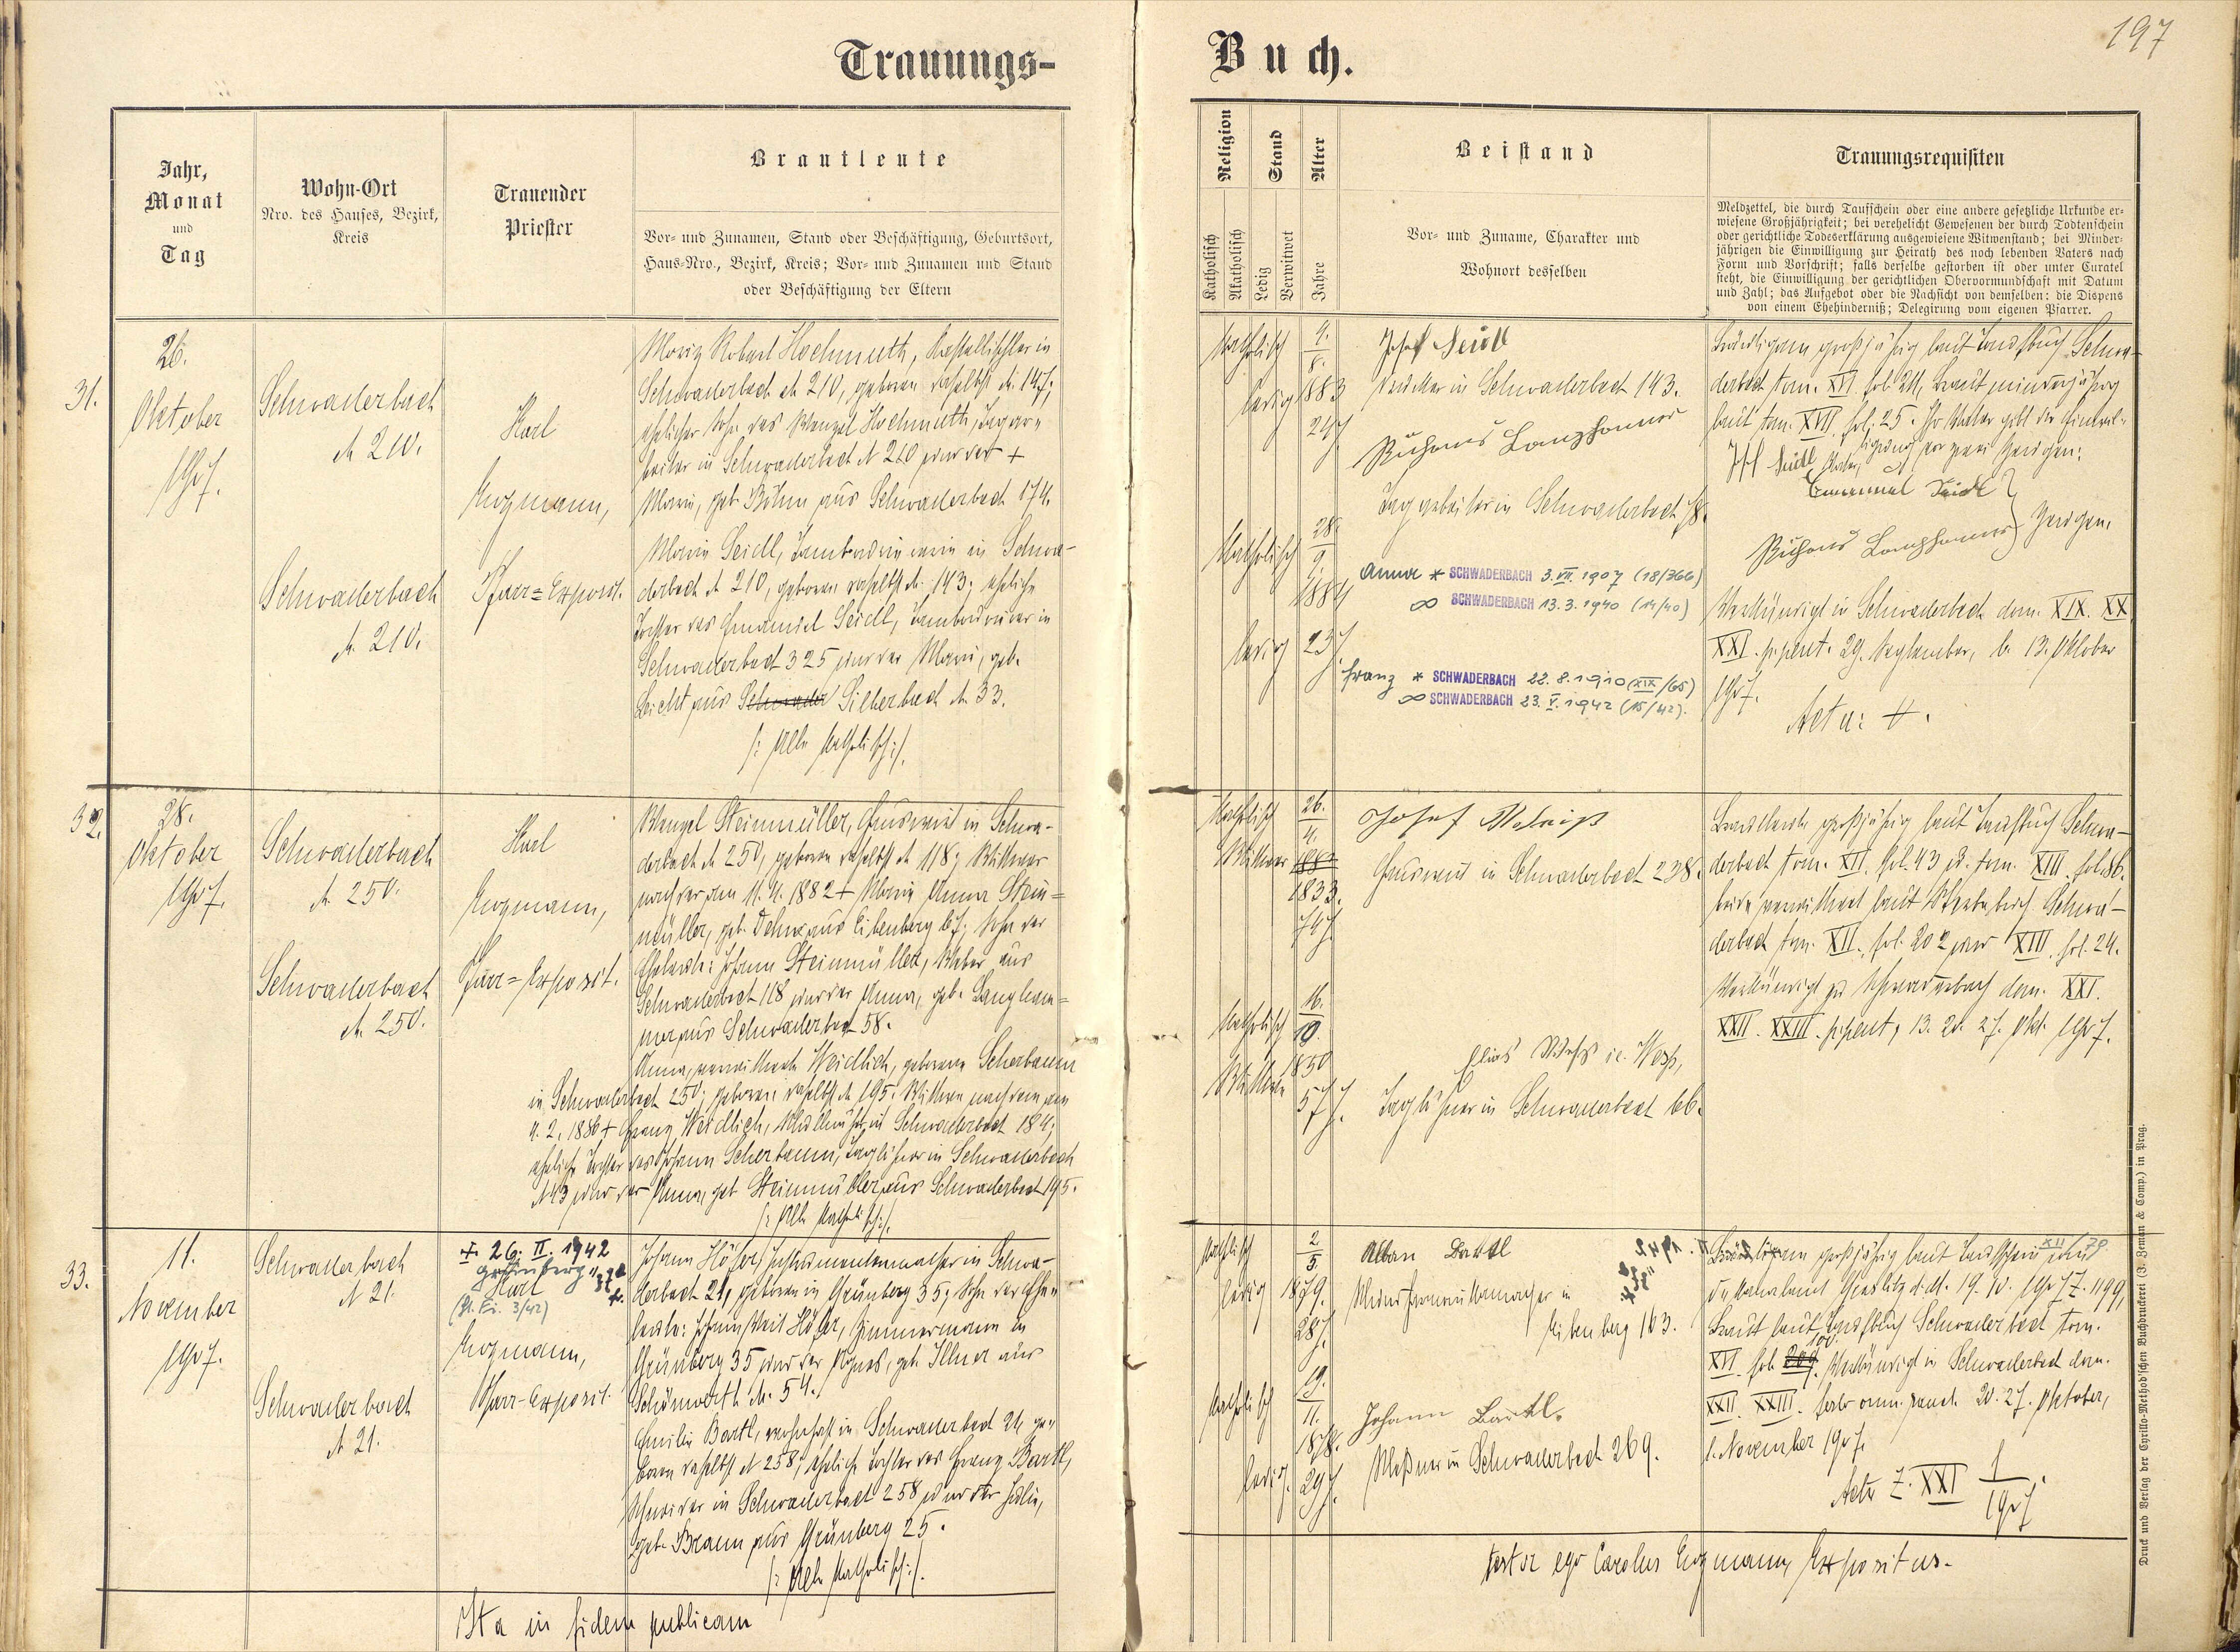 197
Trauungs-
Buch.
Jahr,
Monat
und
Tag
Wohn-Ort
Nro. des Hauses, Bezirk,
Kreis
Trauender
Priester
Brautleute
Vor- und Zunamen, Stand oder Beschäftigung, Geburtsort,
Haus-Nro., Bezirk, Kreis; Vor- und Zunamen und Stand
oder Beschäftigung der Eltern
Religion
Katholisch
Akatholisch
Stand
Ledig
Verwitwet
Alter
Jahre
Beistand
Vor- und Zuname, Charakter und
Wohnort desselben
Trauungsrequisiten
Meldzettel, die durch Taufschein oder eine andere gesetzliche Urkunde er-
wiesene Großjährigkeit; bei verehelicht Gewesenen der durch Todtenschein
oder gerichtliche Todeserklärung ausgewiesene Witwenstand; bei Minder-
jährigen die Einwilligung zur Heirath des noch lebenden Vaters nach
Form und Vorschrift; falls derselbe gestorben ist oder unter Curatel
steht, die Einwilligung der gerichtlichen Obervormundschaft mit Datum
und Zahl; das Aufgebot oder die Nachsicht von demselben: die Dispens
von einem Ehehinderniß; Delegirung vom eigenen Pfarrer.
31.
26.
Oktober
1907.
Schwaderbach
N 210.
Schwaderbach
N. 210.
Karl
Pfarr-Exposit.
Moriz Robert Hochmuth, in
Schwaderbach N 210, geboren daselbst N. 147;
ehelicher Sohn des Wenzel Hochmuth, Tagar-
beiter in Schwaderbach N 210 und der +
Marie, geb. Böhm aus Schwaderbach 174.
Marie Seidl, in Schwa-
derbach N 210, geboren daselbst N. 143; eheliche
Tochter des Emanuel Seidl, in
Schwaderbach 325 und der Marie, geb.
Leicht aus Silberbach N. 33.
/: Alle katholisch :/.
Katholisch
ledig
4.
8.
1883
24 J.
Katholisch
ledig
28.
9.
1884
23 J.
Josef Seidl
in Schwaderbach 143.
Richard Langhammer
Tagarbeiter in Schwaderbach 78.
Anna * SCHWADERBACH 3. VII. 1907 (18/366)
∞ SCHWADERBACH 13.3.1940 (14/40)
Franz * SCHWADERBACH 22.8.1910 (XIX/65)
∞ SCHWADERBACH 23. V. 1942 (15/42).
Bräutigam großjährig laut Taufbuch Schwa-
derbach tom. XVI. fol. 211, Braut minderjährig
laut tom. XVII. fol. 25. Ihr Vater gibt die Einwil-
ligung vor zwei Zeugen:
Josef Seidl
Emanuel Seidl
Richard Langhammer } Zeugen.
Verkündigt in Schwaderbach dom. XIX. XX.
XXI. p. pent. 29. September, 6. 13. Oktober
1907.
Acta: #.
32.
28.
Oktober
1907.
Schwaderbach
N. 250.
Schwaderbach
N. 250.
Karl
Pfarr-Exposit.
Wenzel Steinmüller, in Schwa-
derbach N 250, geboren daselbst N 118; Witwer
nach der am 11. 4. 1882 + Marie Anna Stein-
müller, geb. aus Eibenberg 67; Sohn der
Eheleute: Johann Steinmüller, Weber aus
Schwaderbach 118 und der Anna, geb. Langham-
mer aus Schwaderbach 58.
Anna, verwitwete Weidlich, geborene Scherbaum
in Schwaderbach 250; geboren daselbst N 195. Witwe nach dem am
4. 2. 1886 + Franz Weidlich, in Schwaderbach 184;
eheliche Tochter des Johann Scherbaum, Taglöhner in Schwaderbach
N 43 und der Anna, geb. Steinmüller aus Schwaderbach 195.
/: Alle katholisch :/.
Katholisch
Witwer
26.
4.
1833.
74 J.
Katholisch
Witwe
16.
10.
1850
57 J.
Josef
in Schwaderbach 238.
Elias
Taglöhner in Schwaderbach 66.
Brautleute großjährig laut Taufbuch Schwa-
derbach tom. XII. fol. 43 u. tom. XIII. fol. 86.
beide verwitwet laut Sterbebuch Schwa-
derbach tom. XII. fol. 202 und XIII. fol. 24.
Verkündigt zu Schwaderbach dom. XXI.
XXII. XXIII. p. pent. 13. 20. 27. Okt. 1907.
33.
11.
November
1907.
Schwaderbach
N 21.
Schwaderbach
N. 21.
+ 26. II. 1942
Grünberg
(3/42)
Karl
Pfarr-Exposit.
Johann Höfer, Instrumentenmacher in Schwa-
derbach 21, geboren in Grünberg 35; Sohn der Ehe-
leute: Johann Veit Höfer, Zimmermann in
Grünberg 35 und der Agnes, geb. Illner aus
Schönwerth N. 54.
Emilie Bartl, wohnhaft in Schwaderbach 21, ge-
boren daselbst N 258; eheliche Tochter des Franz Bartl,
Schneider in Schwaderbach 258 und der Julie,
geb. Braun aus Grünberg 25.
/: Alle katholisch :/.
Katholisch
ledig
2
5.
1879.
28 J.
Katholisch
ledig.
19.
11.
1878.
29 J.
Alban Bartl
Mundharmonikamacher in
Eibenberg 163.
Johann Bartl.
Meßner in Schwaderbach 269.
Bräutigam großjährig laut Taufschein
Graslitz d. d. 19. 10. 1907 Z. 1199,
Braut laut Taufbuch Schwaderbach tom.
XVI. fol. Verkündigt in Schwaderbach dom.
XXII. XXIII. festo omn. sanct. 20. 27. Oktober,
1. November 1907.
Acta Z. XXI 1/1907.
Ita in fidem publicam
testor ego Carolus Expositus.
Druck und Verlag der Cyrillo-Method'schen Buchdruckerei (J. Zeman & Comp.) in Prag.